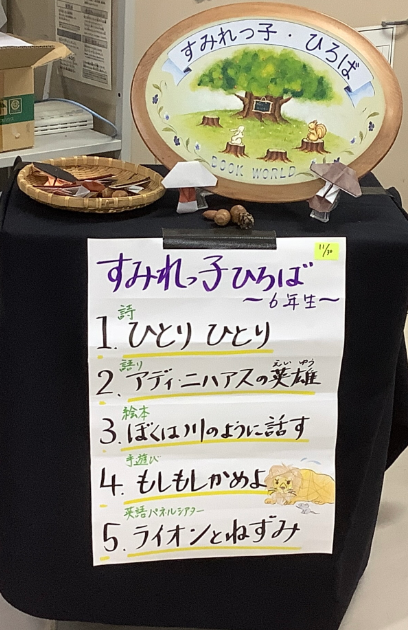 すみれっ子・ひろば
BOOK WORLD
11/30
すみれっ子ひろば
～6年生～
詩
1. ひとり ひとり
語り
2. アディ・ニハアスの英雄
えい ゆう
絵本
3. ぼくは川のように話す
手遊び
4. もしもしかめよ
英語パネルシアター
5. ライオンとねずみ